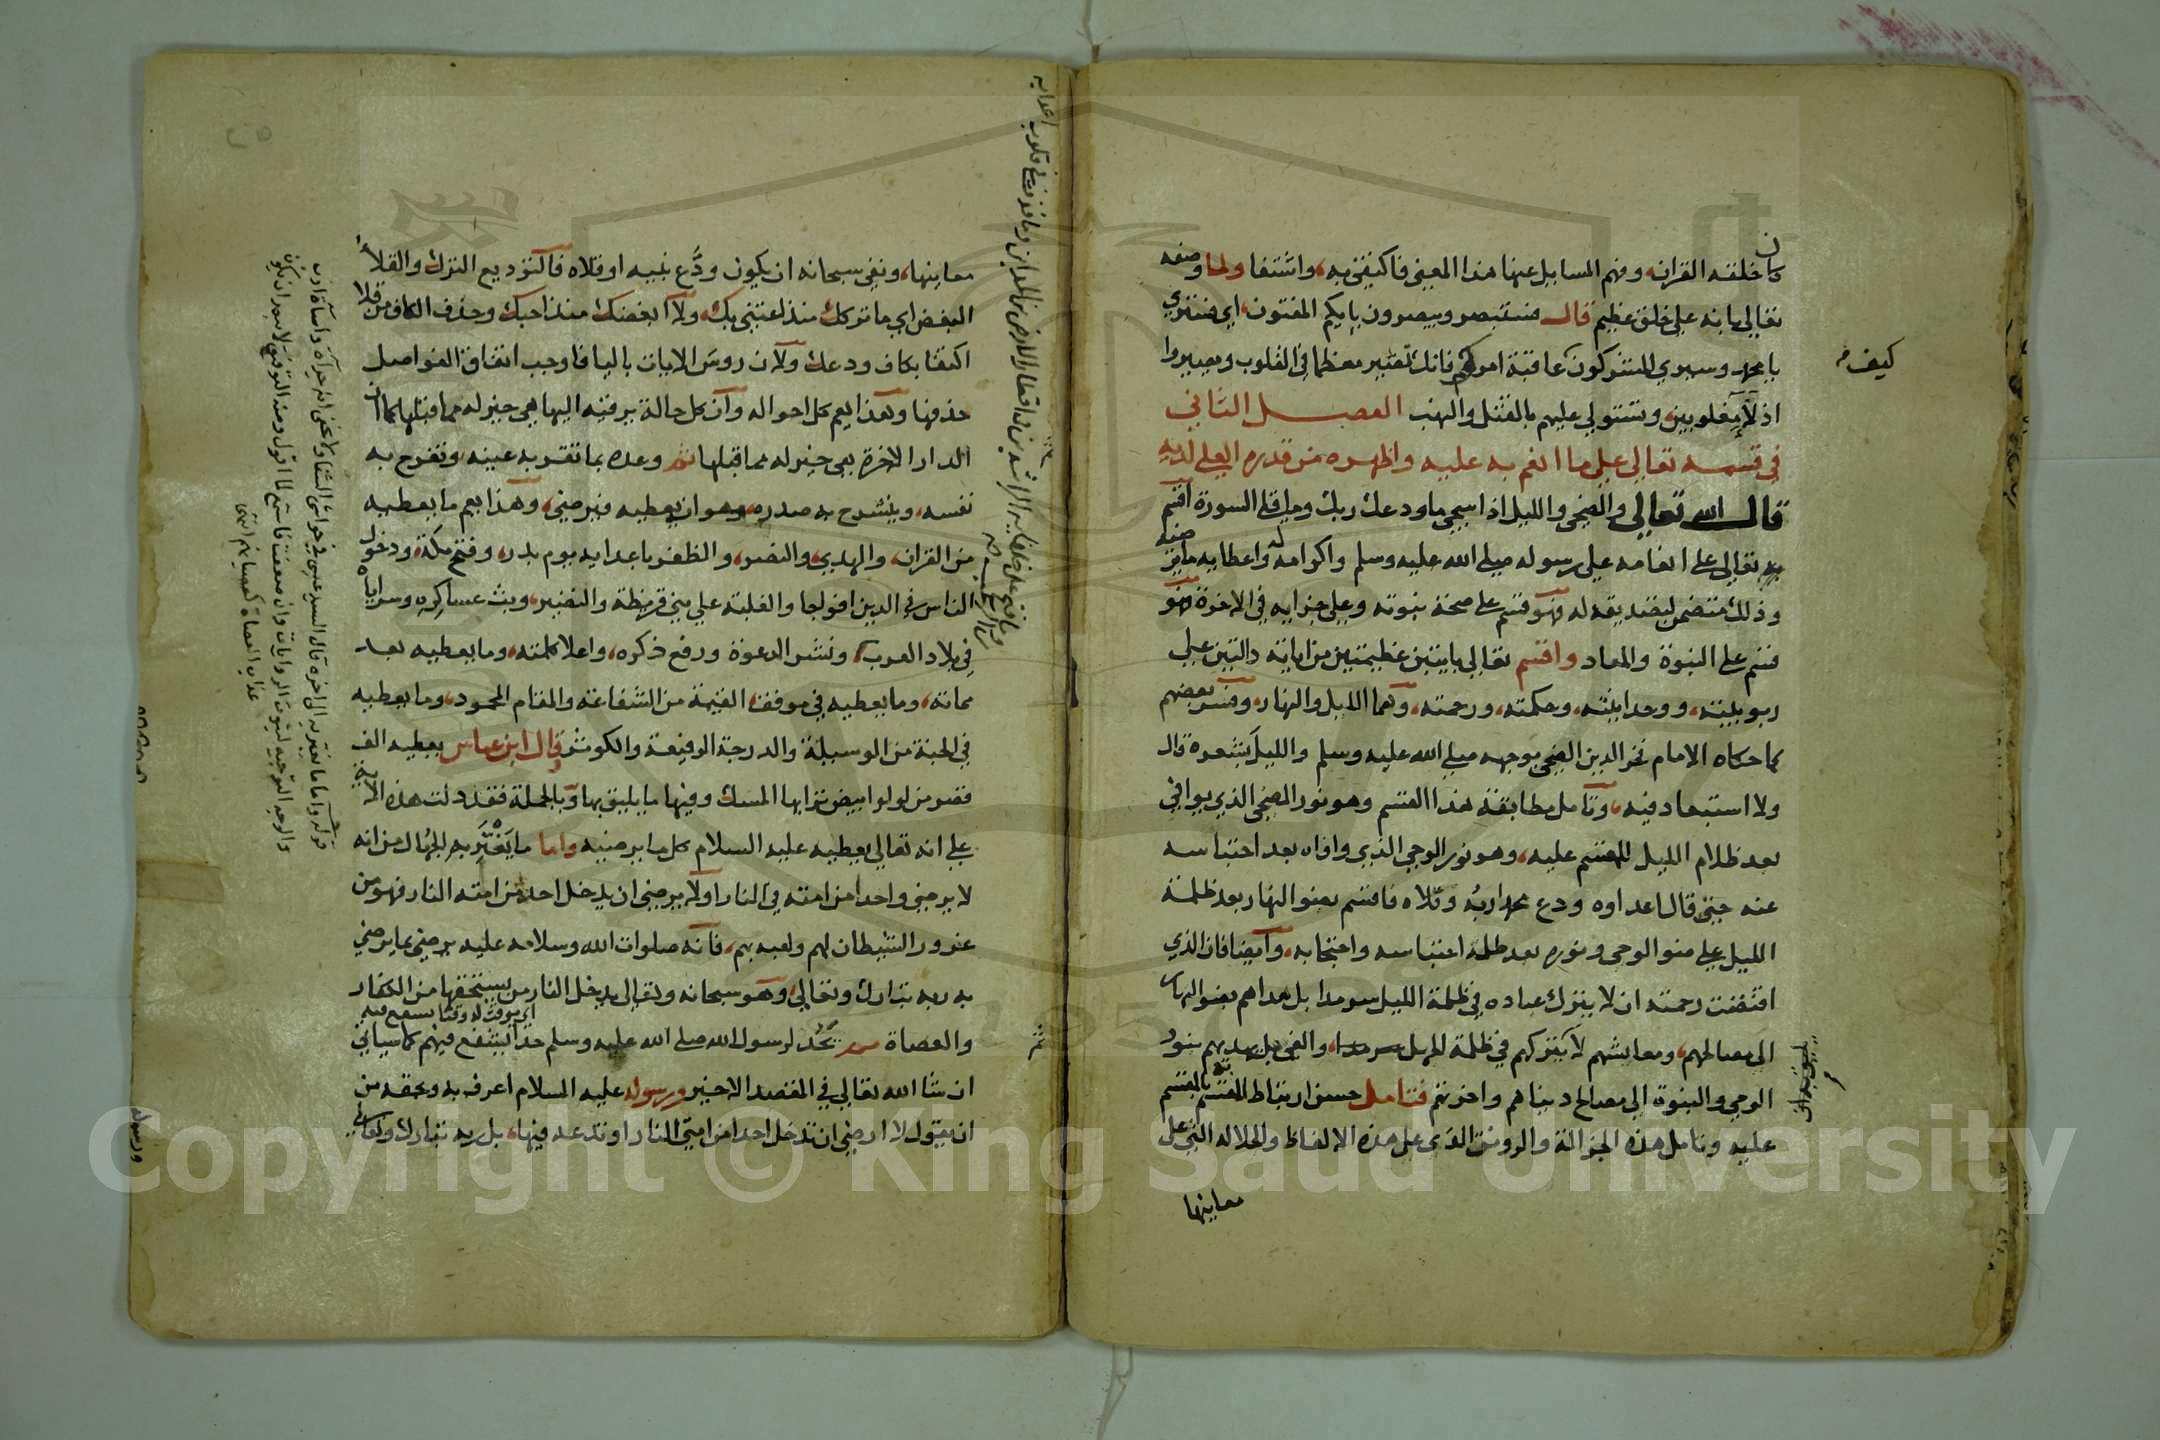 كان خلقه القران، وفهم السايل عنها هذا المعنى فاكتفى به، واشتفا ولما وصفه
تعالى بانه على خلق عظيم قال فستبصر ويبصرون بايكم المفتون، اي فسترى
يا محمد وسيرى المشركون كيف عاقبة امركم فانك تصير معظما في القلوب ويصيروا
اذلآء مغلوبين، وتستولي عليهم بالقتل والنهب الفصل الثاني
في قسمه تعالى على ما انعم به عليه واظهره من قدره العلى لديه
قال الله تعالى والضحى والليل اذا سجى ما ودعك ربك وما قلى السورة اقسم
تعالى على انعامه على رسوله صلى الله عليه وسلم واكرامه له واعطايه ما يرضيه
وذلك متضمن لتصديقه له فهو قسم على صحة نبوته وعلى جزايه في الاخرة فهو
قسم على النبوة والمعاد واقسم تعالى بايتين عظيمتين من اياته دالتين على
ربوبيته، ووحدانيته، وحكمته، ورحمته، وهما الليل والنهار، وفسر بعضهم
كما حكاه الامام فخر الدين الضحى بوجهه صلى الله عليه وسلم والليل بشعره قال
ولا استبعاد فيه، وتامل مطابقة هذا القسم وهو نور الضحى الذي يوافي
بعد ظلام الليل للمقسم عليه، وهو نور الوحي الذي وافاه بعد احتباسه
عنه حتى قال اعداوه ودع محمدا ربه وقلاه فاقسم بضو النهار بعد ظلمة
الليل على ضو الوحى ونوره بعد ظلمة احتباسه واحتجابه، وايضا فان الذي
اقتضت رحمته ان لا يترك عباده في ظلمة الليل سرمدا بل هداهم بضو النهار
الى مصالحهم، ومعايشهم لا يتركهم في ظلمة الجهل والغى بل يهديهم بنور
الوحي والنبوة الى مصالح دنياهم واخرتهم فتامل حسن ارتباط المقسم به بالمقسم
عليه وتامل هذه الجزالة والرونق الذى على هذه الالفاظ والجلالة التى على
معانيها
معانيها، ونفى سبحانه ان يكون ودَّع نبيه او قلاه فالتوديع الترك والقلا
البغض اي ما تركك منذ اعتنى بك، ولا ابغضك منذ احبك وحذف الكاف من قلا
اكتفا بكاف ودعك ولان روس الايات باليا فاوجب اتفاق الفواصل
حذفها وهذا يعم كل احواله وان كل حالة يرقيه اليها هي خير له مما قبلها كما ان
الدار الاخرة هى خير له مما قبلها ثم وعده بما تقر به عينه وتفرح به
نفسه، وينشرح به صدره، وهو ان يعطيه فيرضى، وهذا يعم ما يعطيه
من القران، والهدى، والنصر، والظفر باعدايه يوم بدر، وفتح مكة، ودخول
الناس في الدين افواجا والغلبة على بني قريظة والنضير، وبث عساكره وسراياه
في بلاد العرب، ونشر الدعوة ورفع ذكره، واعلا كلمته، وما يعطيه بعد
مماته، وما يعطيه في موقف القيمة من الشفاعة والمقام المحمود، وما يعطيه
في الجنة من الوسيلة والدرجة الرفيعة والكوثر قال ابن عباس يعطيه الف
قصر من لولو ابيض ترابها المسك وفيها ما يليق بها وبالجملة فقد دلت هذه الاية
على انه تعالى يعطيه عليه السلام كل ما يرضيه واما ما يَغْتَرُّ به الجهال من انه
لا يرضى واحدا من امته في النار او لا يرضى ان يدخل احد من امته النار فهو من
غرور الشيطان لهم ولعبه بهم، فانه صلوات الله وسلامه عليه يرضى بما يرضى
به ربه تبارك وتعالى، وهو سبحانه وتعالى يدخل النار من يستحقها من الكفار
والعصاة ثم يحد لرسول الله صلى الله عليه وسلم حدا يشفع فيهم كما سياتي
ان شا الله تعالى في المقصد الاخير ورسوله عليه السلام اعرف به وبحقه من
ان يقول لا ارضى ان تدخل احدا من امتى النار او تدعه فيها، بل ربه تبارك وتعالى